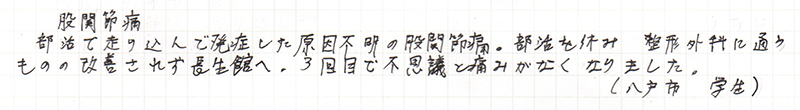 股関節痛
部活で走り込んで発症した原因不明の股関節痛。部活を休み 整形外科に通う
ものの改善されず長生館へ。3回目で不思議と痛みがなくなりました。
(八戸市 学生)